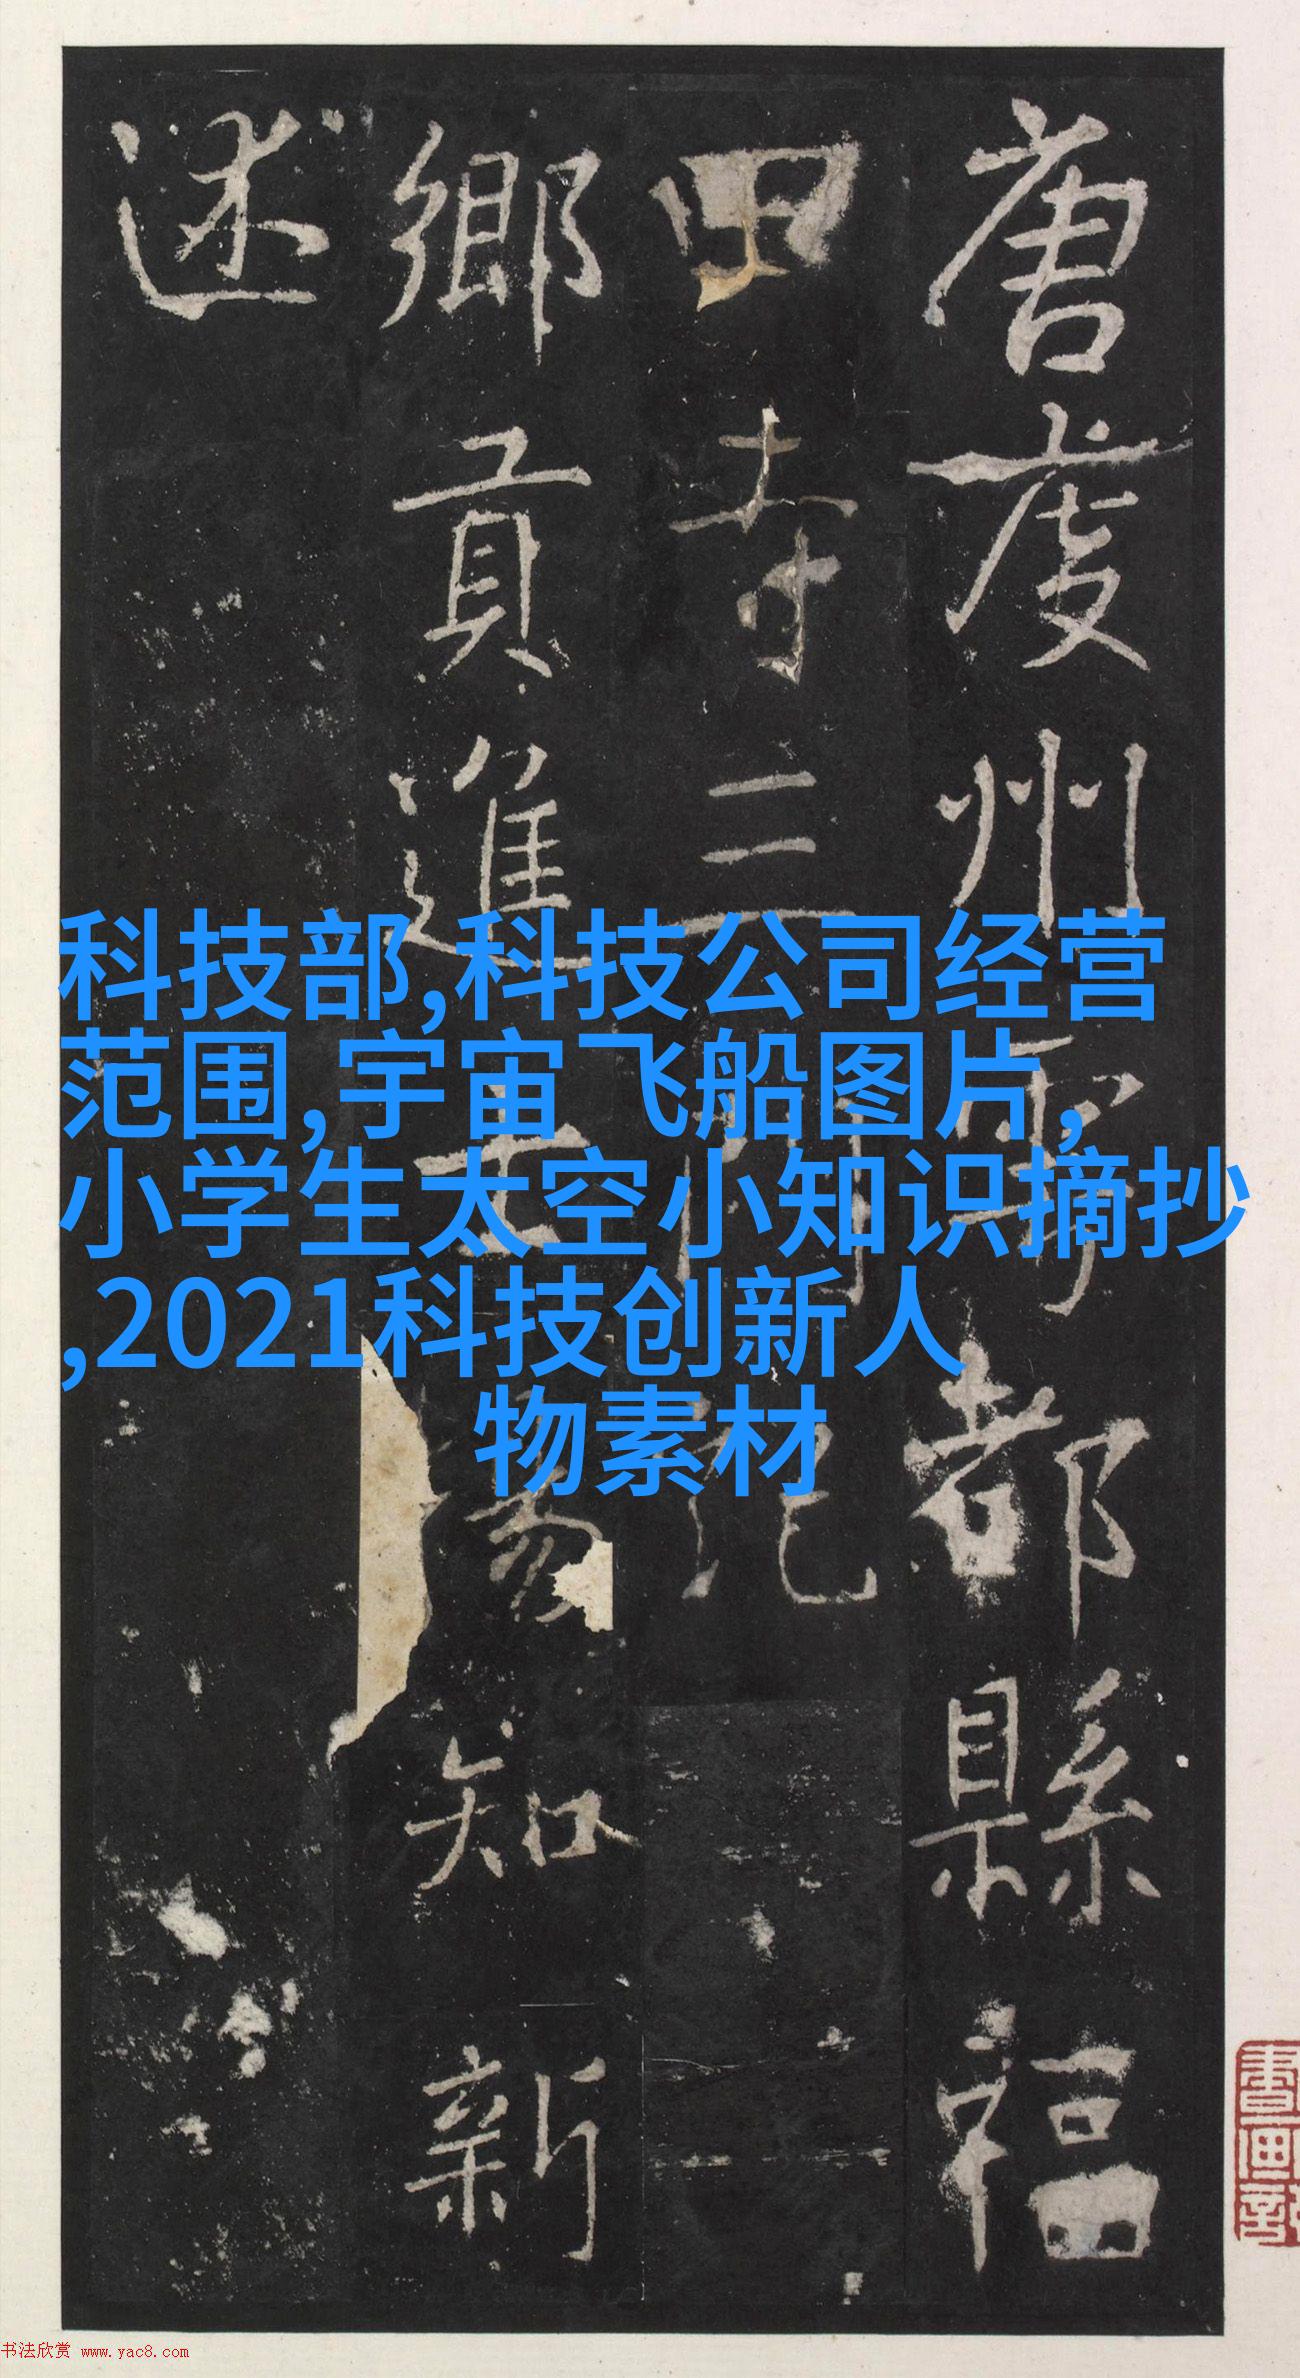 唐虔州雩都縣福
田寺三門記
鄉貢進士易知新
述
科技部,科技公司经营
范围,宇宙飞船图片,
小学生太空小知识摘抄
,2021科技创新人
物素材
书法欣赏 www.yac8.com